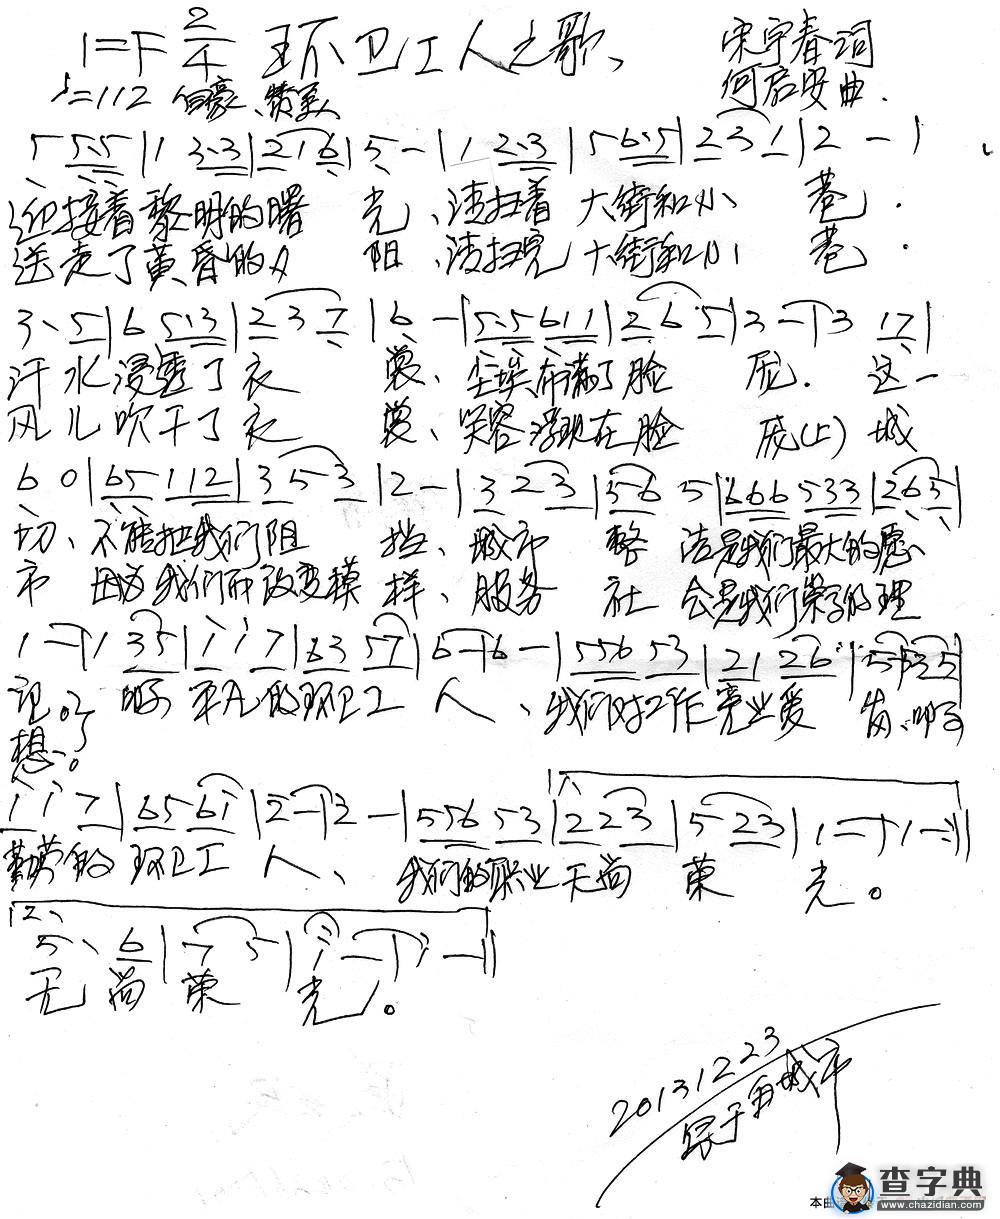 1=F 2/4 环卫工人之歌 宋宇春词
♩=112 自豪、赞美 何启安曲
5 5·5 | 1 3·3 | 2 1 6 | 5 - | 1 2·3 | 5 6·5 | 2 3 1 | 2 - |
迎接着黎明的曙 光、清扫着 大街和小 巷.
送走了黄昏的夕 阳、清扫完 大街和小 巷.
3、5 | 6 5 1 3 | 2 3 7 | 6 - | 5·5 6 1 1 | 2 6 5 | 3 - | 3 1 7 |
汗水浸透了衣 裳、尘埃布满了脸 庞. 这一
风儿吹干了衣 裳、笑容浮现在脸 庞(上) 城
6 0 | 6 5 1 1 2 | 3 5 3 | 2 - | 3 2 3 | 5 6 5 | 6 6 6 5 3 3 | 2 6 5 |
切、不能把我们阻 挡、城市 整 洁是我们最大的愿
市 因为我们而改变模 样、服务 社 会是我们崇高的理
1 - | 1 3 5 | 1 1 7 | 6 3 5 7 | 6 - | 6 - | 5 5 6 5 3 | 2 1 2 6 | 5 - | 5 3 5 |
啊 平凡的环卫工 人、我们对工作兢业爱 岗、啊
想。
1 1 7 | 6 5 6 1 | 2 - | 2 - | 5 5 6 5 3 | 2 2 3 | 5 2 3 | 1 - | 1 - :||
勤劳的 环卫工 人、 我们的职业无尚 荣 光。
2、
5、6 | 7 5 | 1 - | 1 - ||
无尚荣 光。
20131223
查字典
www.chazidian.com